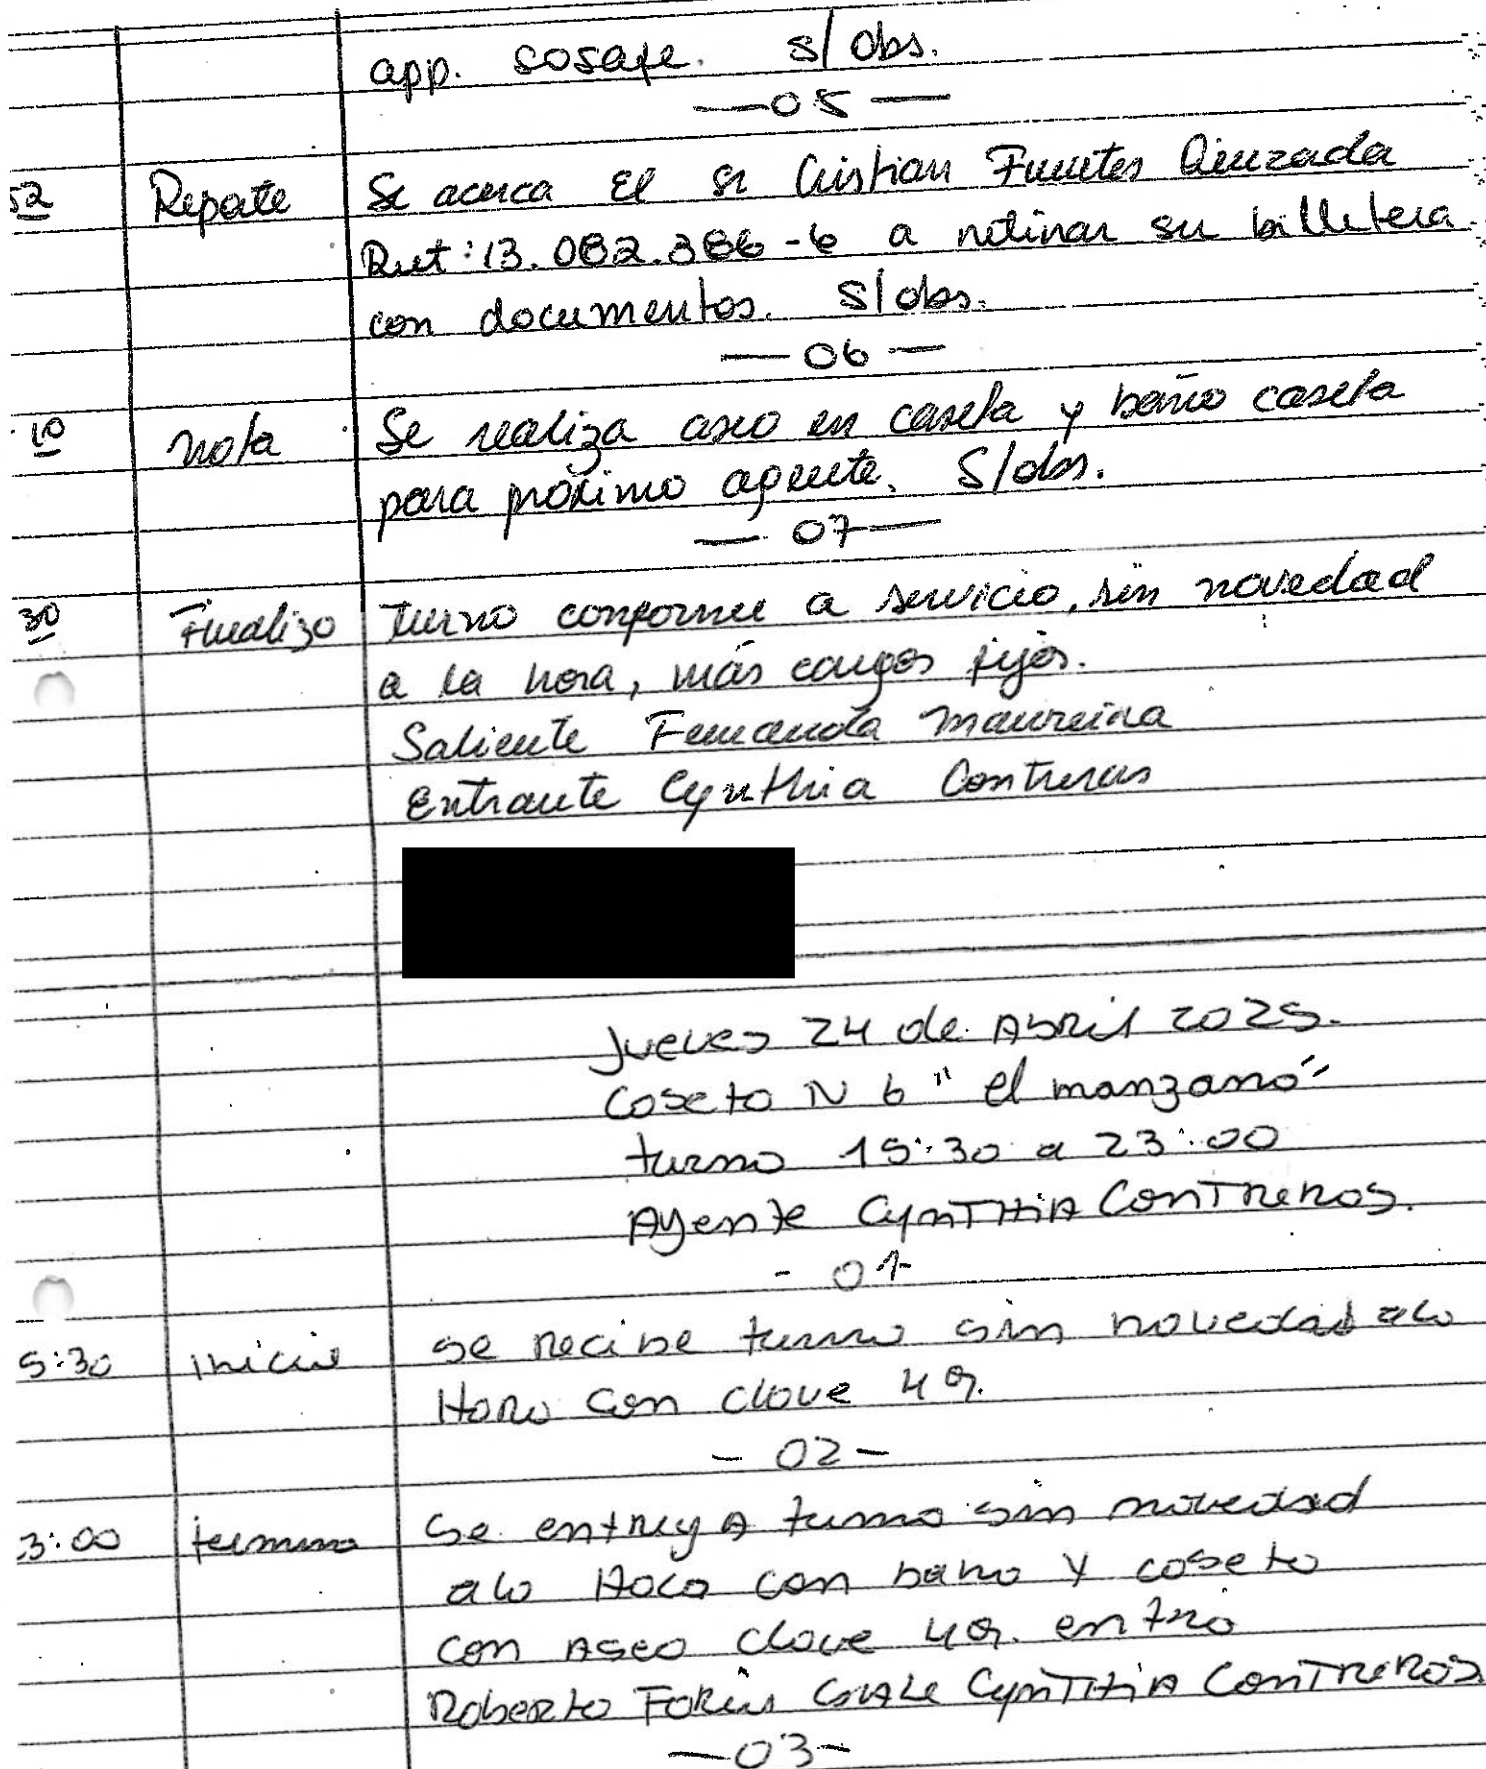 app. sosafe. s/obs.
—05—
52 Repote Se acerca El Sr Cristian Fuentes Quezada
Rut: 13.082.386-6 a retirar su billetera
con documentos. S/obs.
—06—
10 nota Se realiza aseo en caseta y baño caseta
para próximo agente. S/obs.
—07—
30 Finalizo Turno conforme a servicio, sin novedad
a la hora, más cargos fijos.
Saliente Fernanda Maureira
Entrante Cynthia Contreras
Jueves 24 de Abril 2025.
Coseto N 6 "el manzano"
turno 15:30 a 23:00
Agente Cynthia Contreros.
- 01-
5:30 inicio se recibe turno sin novedad alo
Horo con clove 49.
- 02-
3:00 termino Se entrega turno sin novedad
alo con baño y coseto
con Aseo clove 49. entro
Roberto sale Cynthia Contreros
—03-